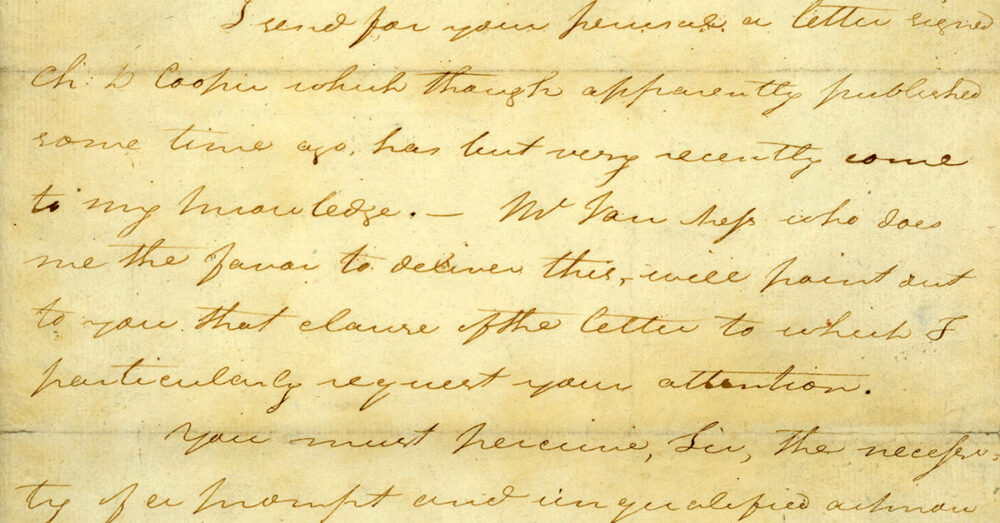 I send for your perusal a letter signed
Ch. D Cooper which though apparently published
some time ago, has but very recently come
to my knowledge. — Mr Van Ness who does
me the favor to deliver this, will point out
to you that clause of the letter to which I
particularly request your attention.
You must perceive, Sir, the necessi-
ty of a prompt and unqualified acknow